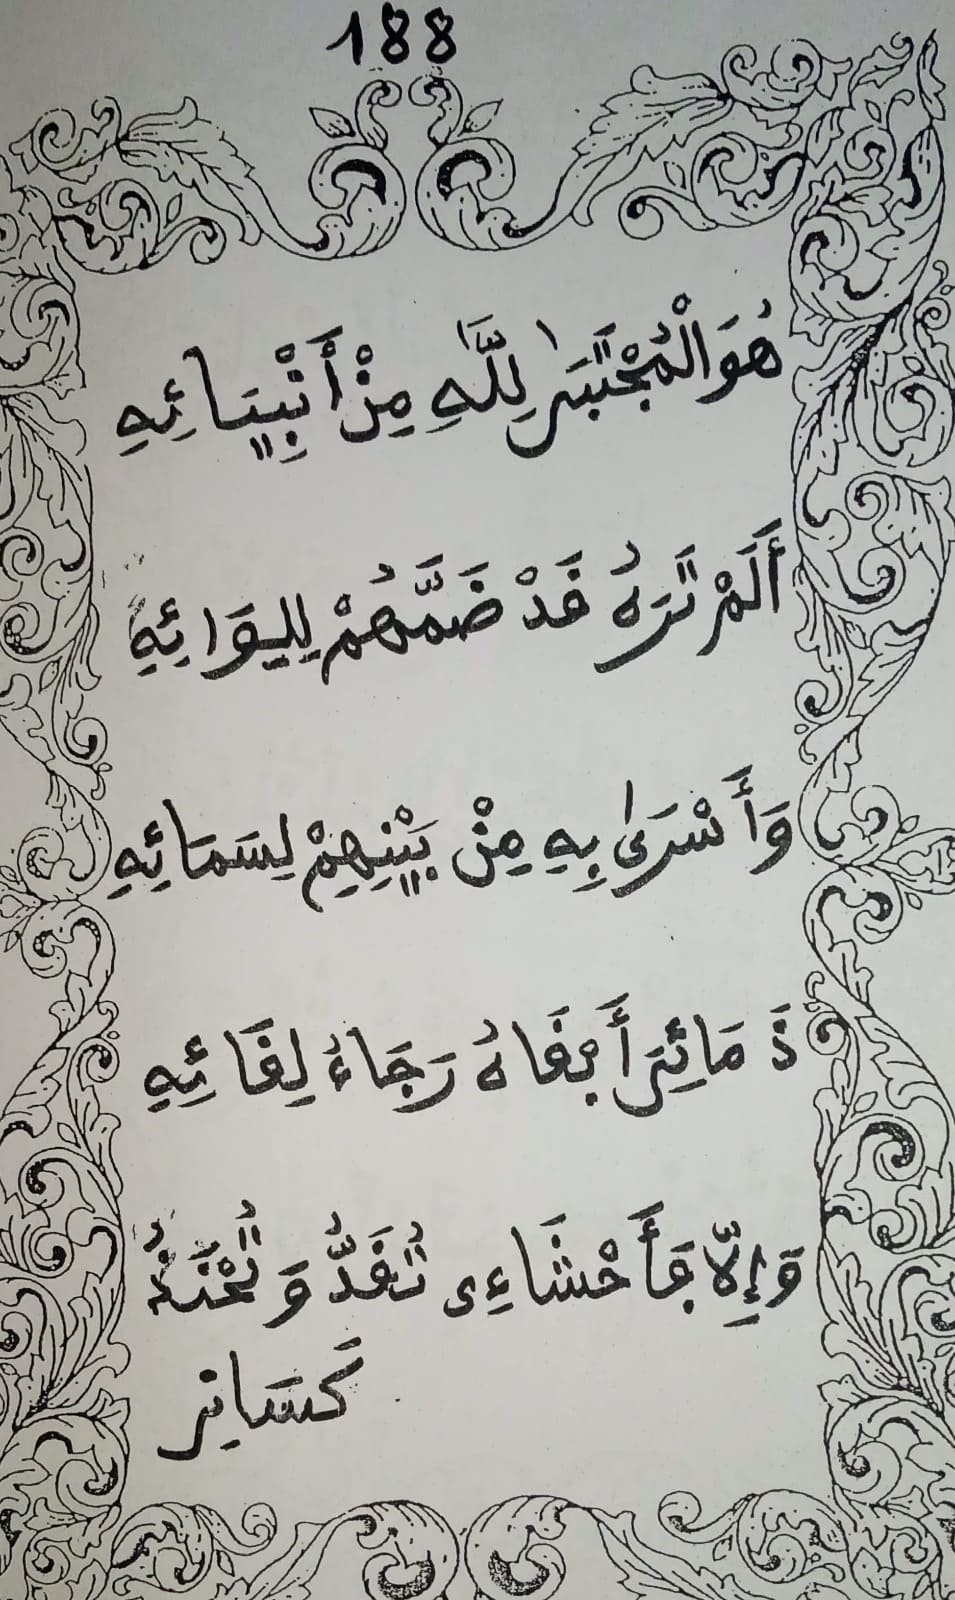 188
هُوَ الْمُجْتَبَى لِلَّهِ مِنْ أَنْبِيَائِهِ
أَلَمْ تَرَهُ قَدْ ضَمَّهُمْ لِلِوَائِهِ
وَأَسْرَى بِهِ مِنْ بَيْنِهِمْ لِسَمَائِهِ
ذَمَائِي أَبْقَاهُ رَجَاءُ لِقَائِهِ
وَإِلَّا فَأَحْشَاءِى تُقَدُّ وَتُحْنَذُ
كَسَانِي